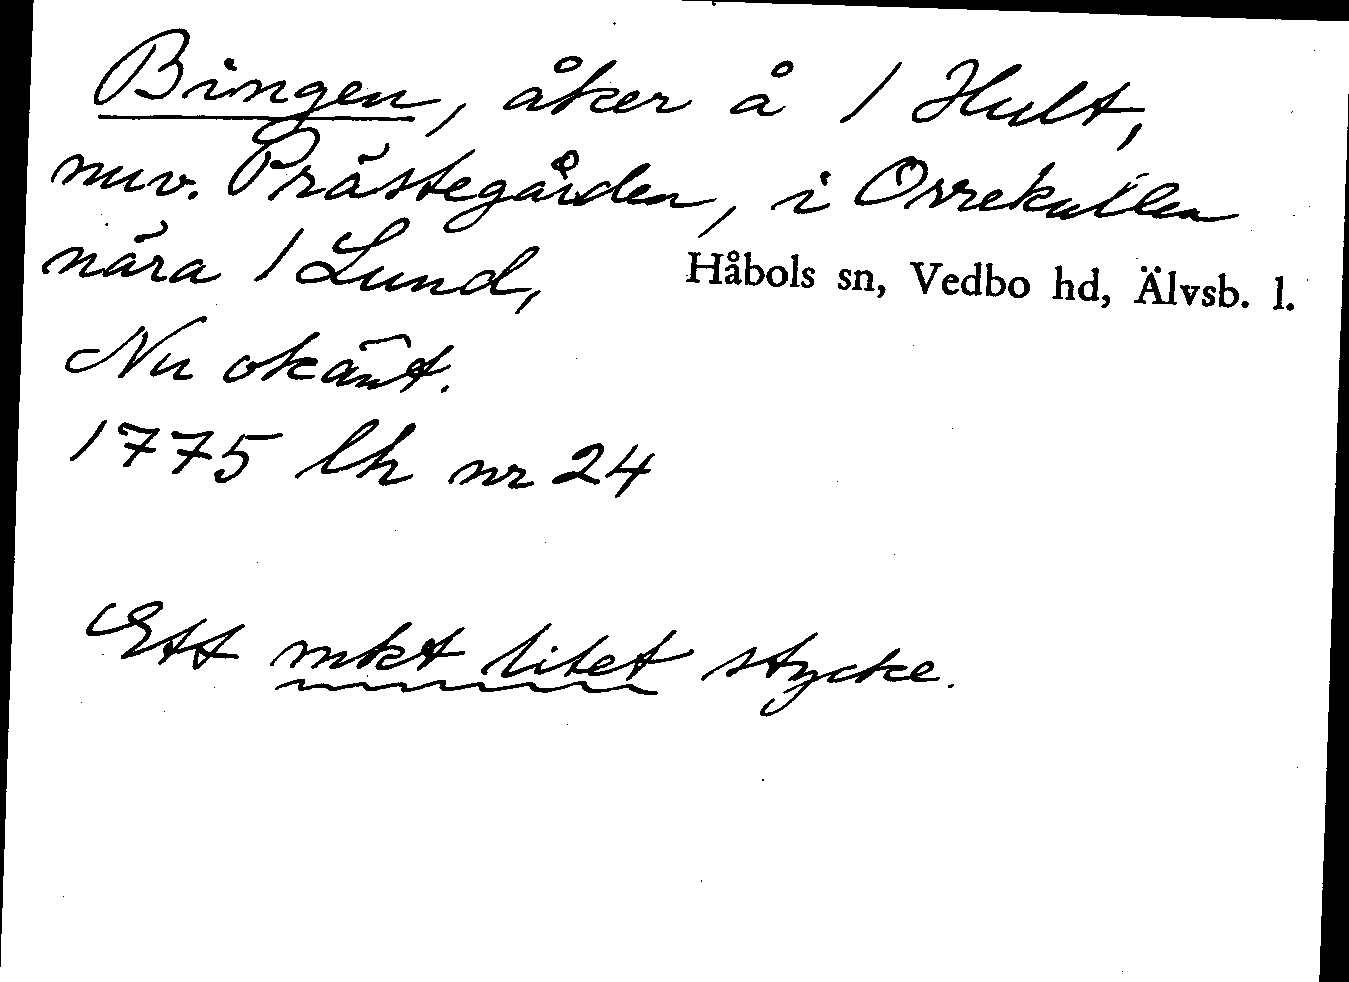 Bingen, åker å 1 Hult,
nuv. Prästegården, i Orrekullen
nära 1 Lund, Håbols sn, Vedbo hd, Älvsb. l.
Nu okänt.
1775 lh nr 24
Ett mkt litet stycke.